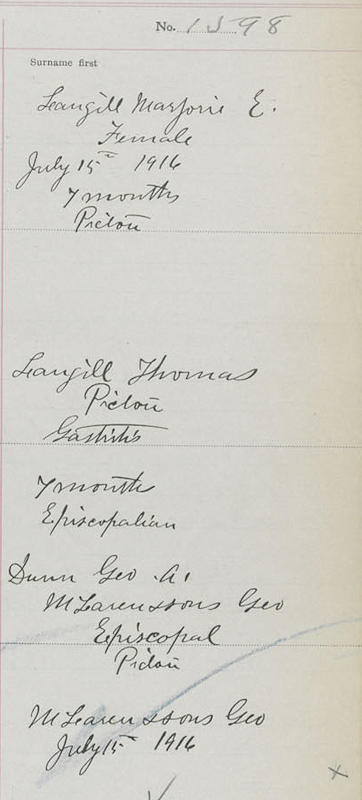 No. 1598
Surname first
Langill Marjorie E.
Female
July 15th 1916
7 months
Pictou
Langill Thomas
Pictou
Gastritis
7 months
Episcopalian
Dunn Geo. A.
McLaren & sons Geo
Episcopal
Pictou
McLaren & sons Geo
July 15th 1916
x